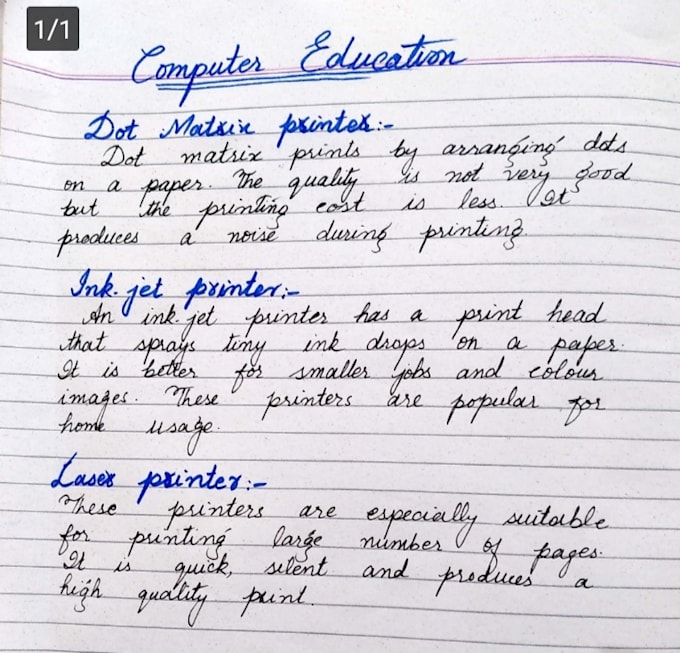 1/1
Computer Education
Dot Matrix printer:-
Dot matrix prints by arranging dots
on a paper. The quality is not very good
but the printing cost is less. It
produces a noise during printing
Ink-jet printer:-
An ink-jet printer has a print head
that sprays tiny ink drops on a paper.
It is better for smaller jobs and colour
images. These printers are popular for
home usage.
Laser printer:-
These printers are especially suitable
for printing large number of pages.
It is quick, silent and produces a
high quality print.